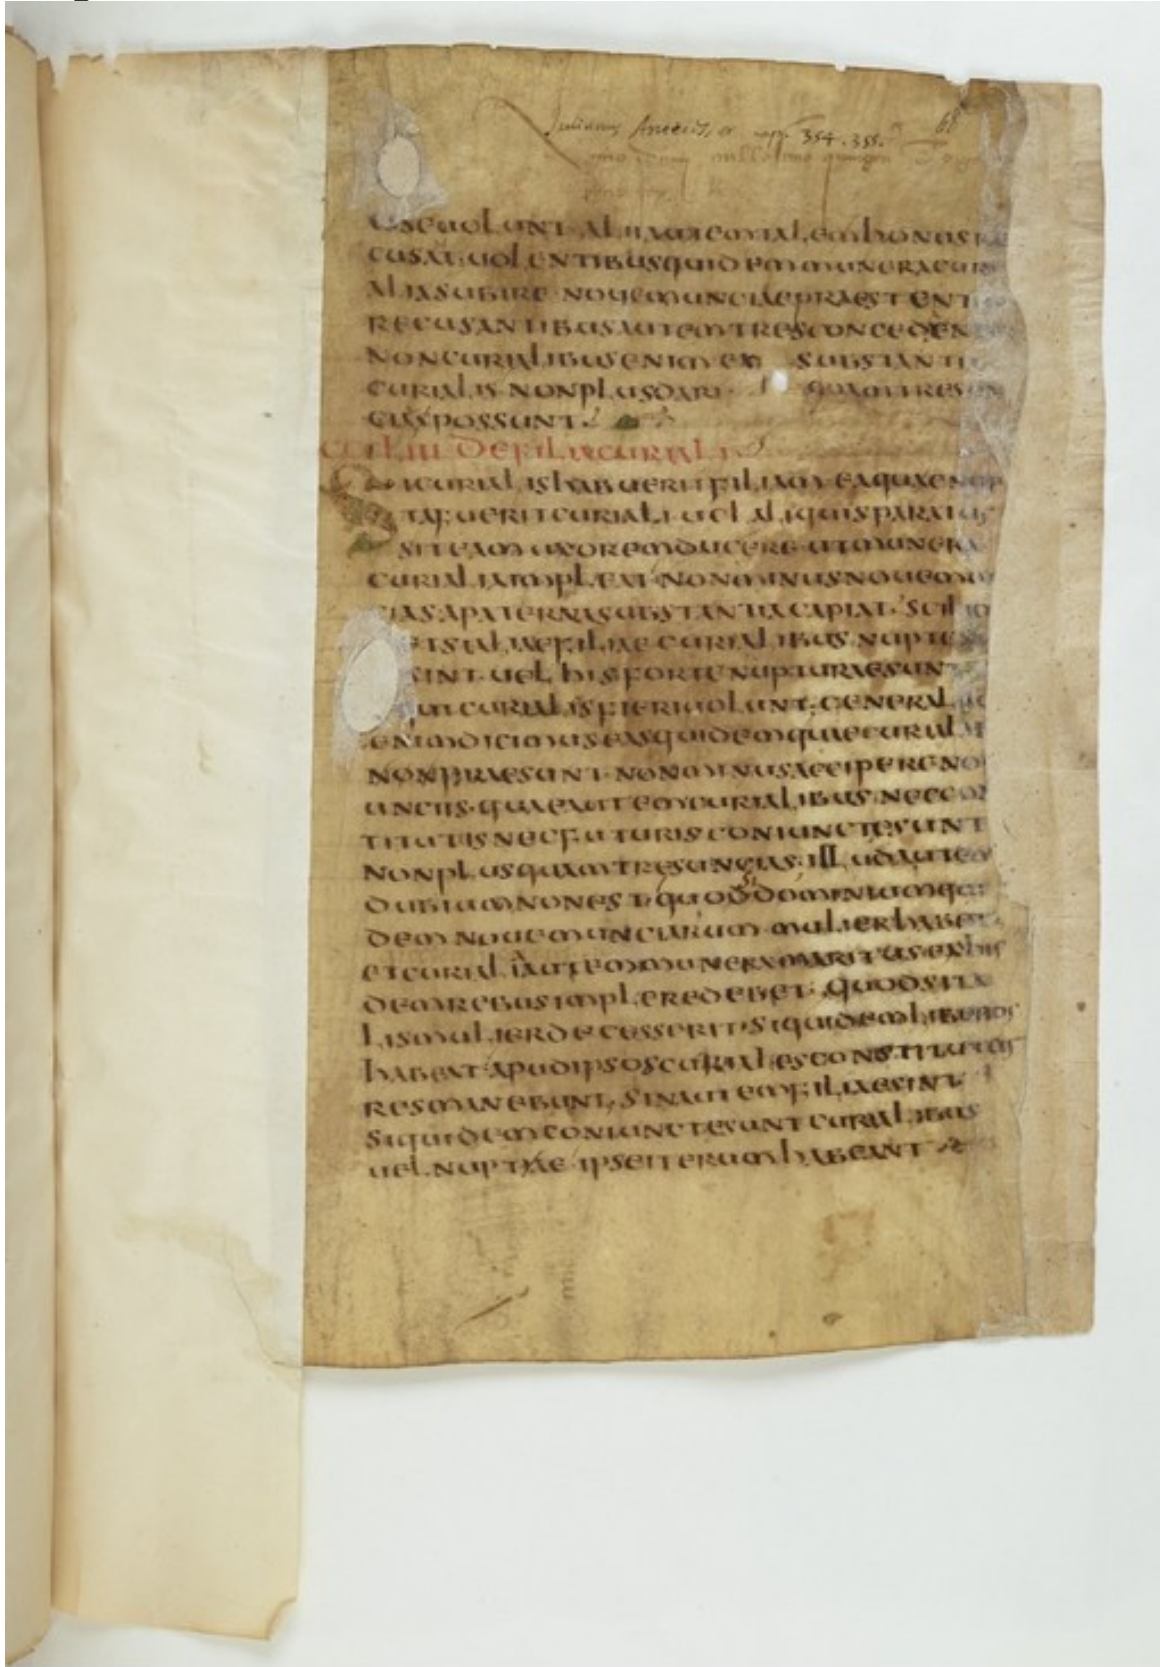 Julianus Antecess. capp. 354. 355.
68
CUSAT UOLENTIBUS QUIDEM MUNERA CUR
ALIA SUBIRE NOUEM UNCIAE PRAESTENT
RECUSANTIBUS AUTEM TRES CONCEDEN
NON CURIALIBUS ENIM EX SUBSTANTI
CURIALIS NON PLUS DARI QUAM TRES UN
CIAS POSSUNT
DE FILIA CURIALI
SI CURIALIS HABUERIT FILIAM EAQUAE NUP
TA FUERIT CURIALI UEL ALIQUIS PARATUS
SIT EAM UXOREM DUCERE UT MUNERA
CURIALIA IMPLEAT NON MINUS NOUEM UN
CIAS A PATERNA SUBSTANTIA CAPIAT SCILI
ET SI ALIAE FILIAE CURIALIBUS NUPTE
SINT UEL HIS FORTE NUPTURAE SUN
QUI CURIALIS FIERI UOLUNT GENERAL
ENIM DICIMUS EAS QUIDEM QUAE CURIAL
NON PRAESUNT NON MINUS ACCIPERE NO
UNCIIS QUAE AUTEM CURIALIBUS NEC CO
TITUTIS NEC FUTURIS CONIUNCTE SUNT
NON PLUS QUAM TRES UNCIAS ILLUD AUTEM
DUBIUM NON EST QUOD DOMINIUM QUI
DEM NOUEM UNCIARUM MULIER HABET
ET CURIALIA AUTEM MUNERA MARITUS EX HIS
DEM REBUS IMPLERE DEBET QUOD SI TA
LIS MULIER DECESSERIT SI QUIDEM LIBEROS
HABEAT APUD IPSOS CURIALES CONSTITUTOS
RES MANEBUNT SIN AUTEM FILIAE SINT
SI QUIDEM CONIUNCTE SUNT CURIALIBUS
UEL NUPTIAE IPSE ITERUM HABEANT